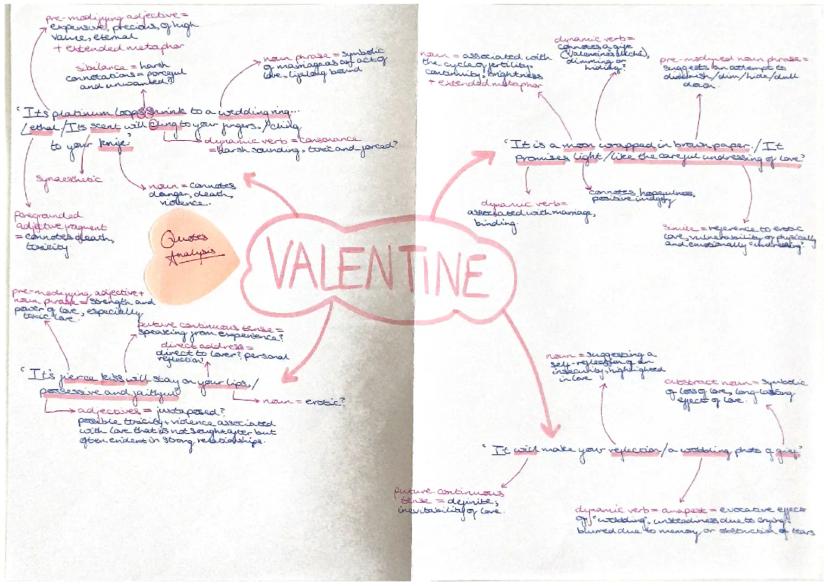 pre-modifying adjective =
expensive, precious, of high
value, eternal
+ extended metaphor
sibilance = harsh
connotations = forceful
and unwanted?
noun phrase = symbolic
of marriage as an act of
love, lifelong bound
"Its platinum loops shrink to a wedding ring...
/Lethal/Its scent will cling to your fingers, /cling
to your knife"
dynamic verb = consonance
= harsh sounding, toxic and forced?
synaesthetic
noun = connotes
danger, death,
violence.
foregrounded
adjective fragment
= connotes death,
toxicity
Quotes
Analysis
VALENTINE
pre-modifying adjective +
noun phrase = strength and
power of love, especially
toxic love.
future continuous tense =
speaking from experience?
direct address =
direct to lover? personal
reflection?
"It's fierce kiss will stay on your lips/
possessive and faithful"
noun = erotic?
adjectives = juxtaposed?
possible toxicity + violence associated
with love that is not sought after but
often evident in strong relationships.
noun = associated with
the cycle of fertility
continuity, brightness
+ extended metaphor
dynamic verb =
connotes a gift
(Valentines cliché),
dimming or
hiding?
pre-modified noun phrase =
suggests an attempt to
diminish/dim/hide/dull
down.
"It is a moon wrapped in brown paper./It
promises light/like the careful undressing of love"
dynamic verb =
associated with marriage,
binding
connotes hopefulness,
positive imagery
simile = reference to erotic
love, vulnerability of physically
and emotionally "undressing"
noun = suggesting a
self-reflection of an
insecurity, highlighted
in love
abstract noun = symbolic
of loss of love, long-lasting
effect of love.
"It will make your reflection/a wobbling photo of grief"
future continuous
tense = definite,
inevitability of love.
dynamic verb = anapest = evocative effect
of "wobbling", unsteadiness due to crying?
blurred due to memory or obstruction of tears